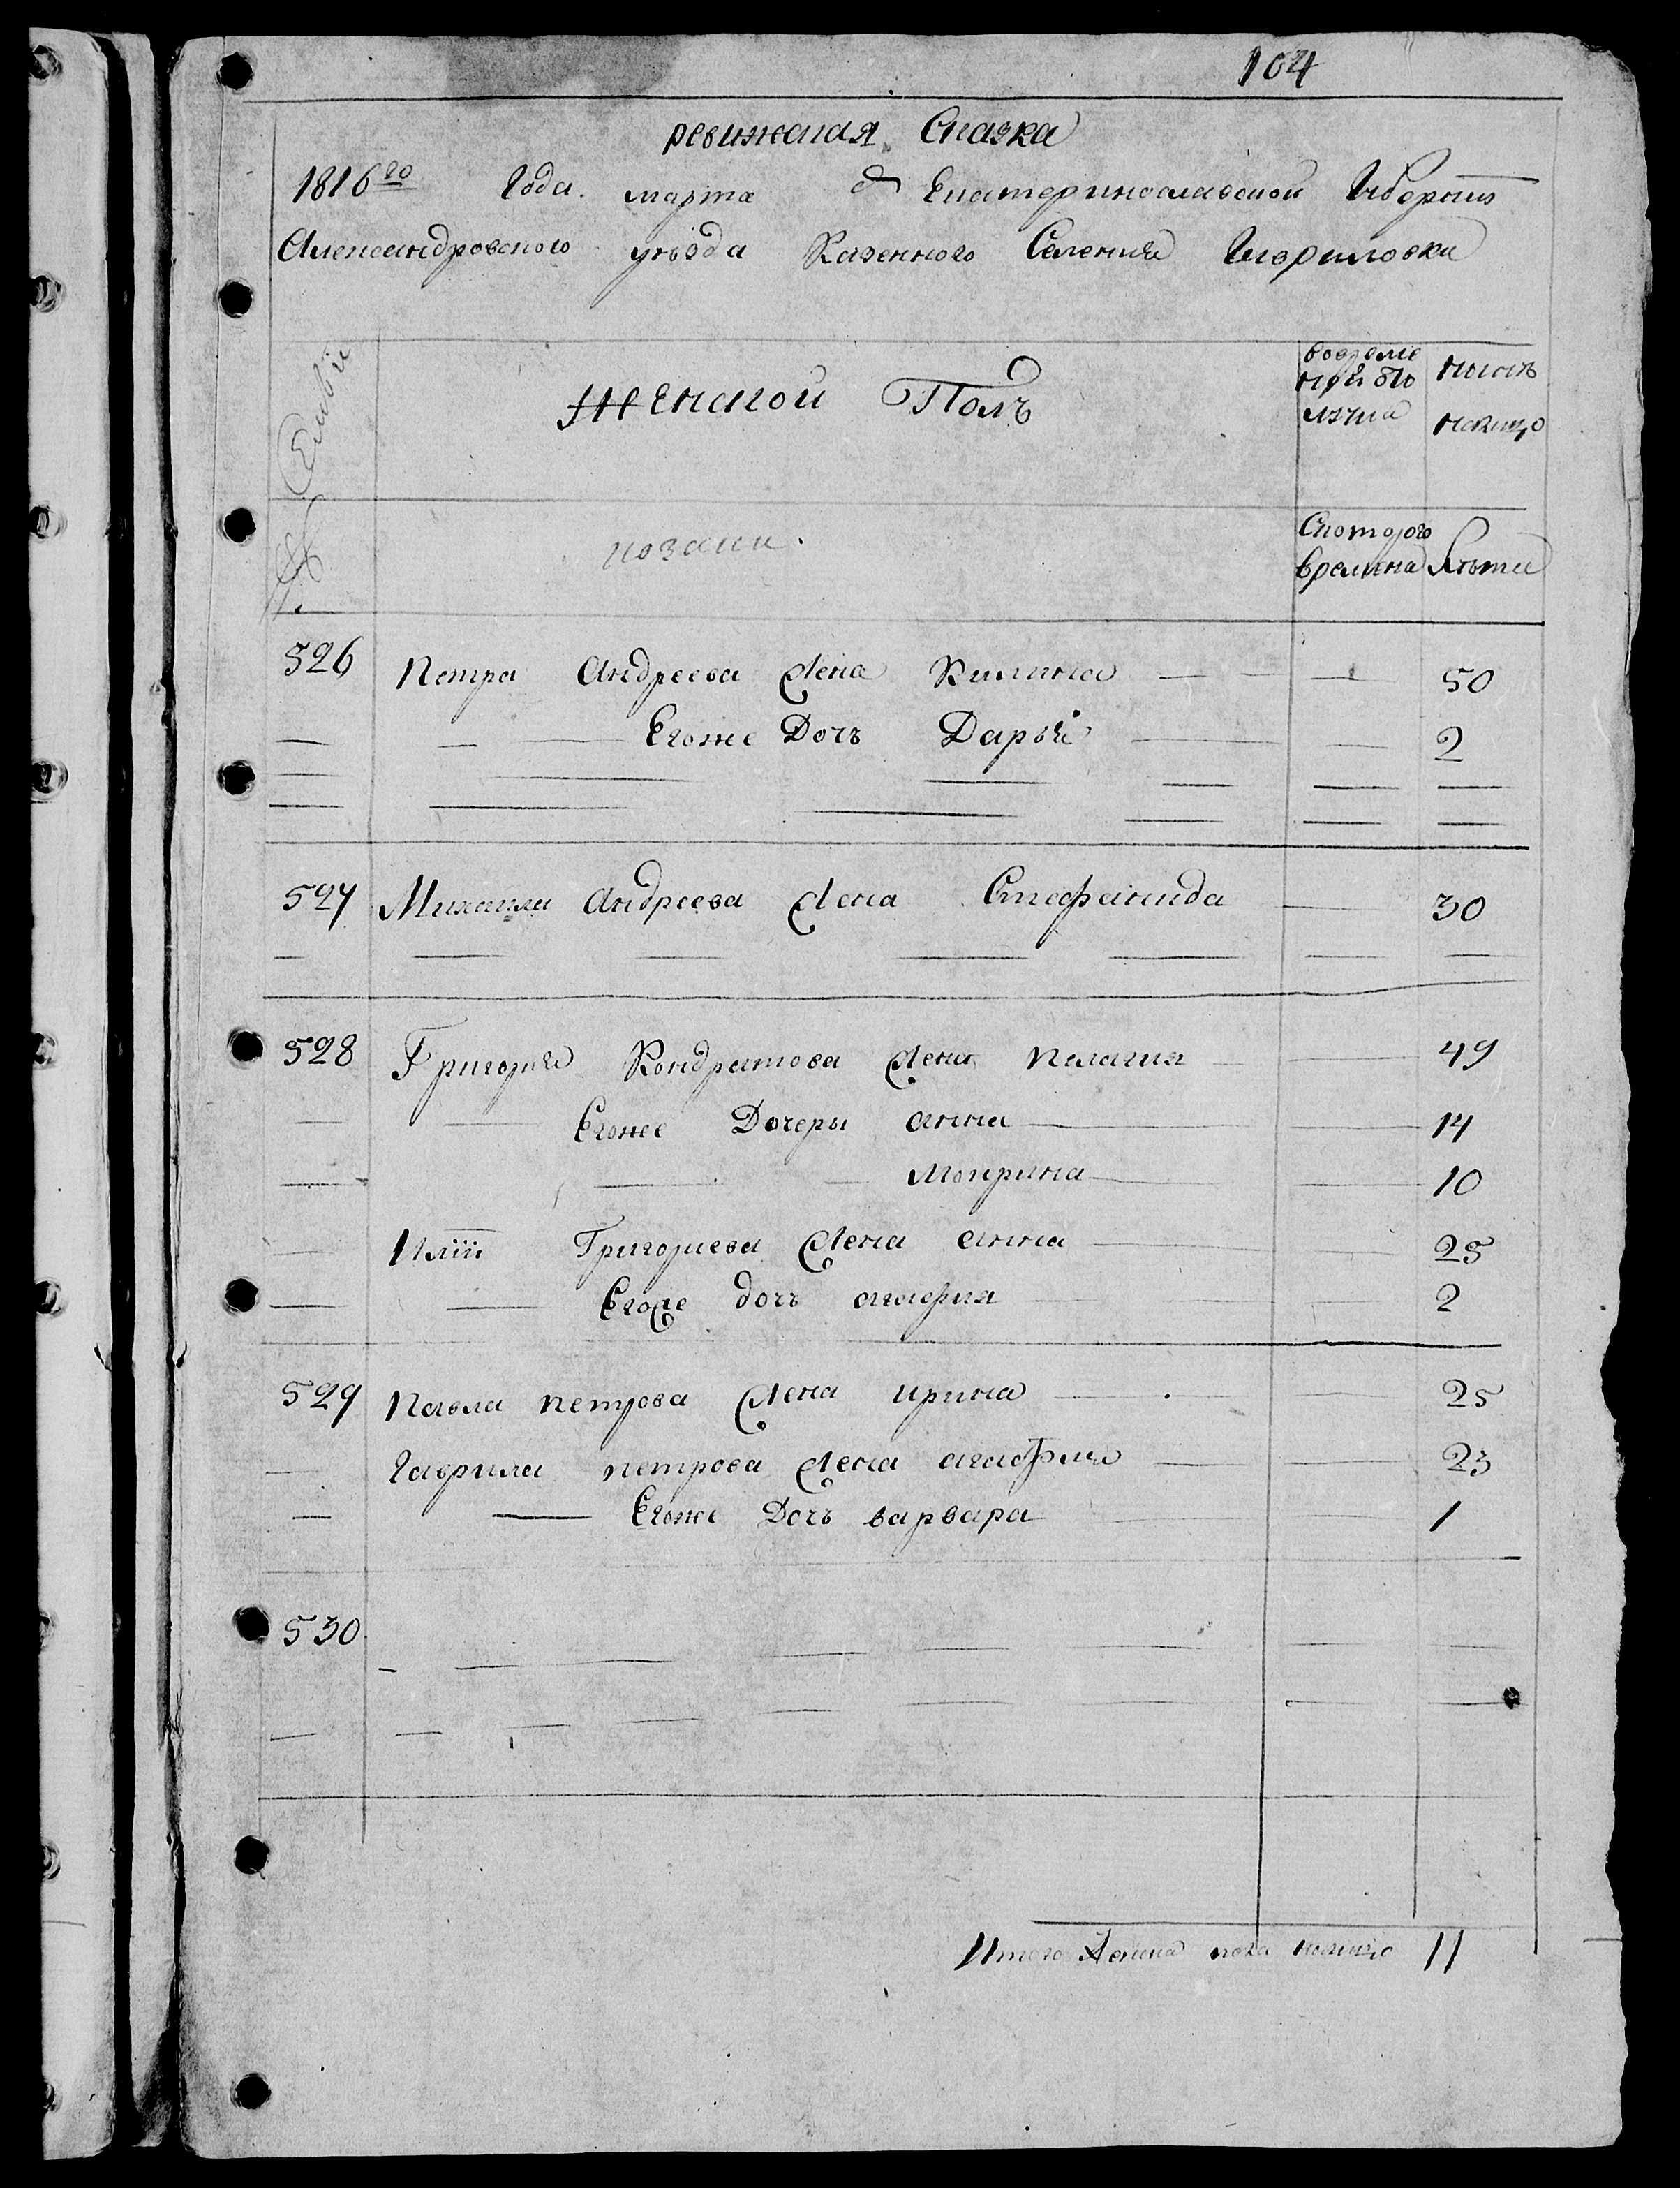 104
ревижская Сказка
1816го Года. марта Екатеринославской Губернии
Александровского уезда Казенного Селения Гавриловки
Семьи
Женской Полъ
вовреме
ной отлучке
ныне
налицо
Скоторого
времена
Лѣта
526 Петра Андреева Жена Килина 50
Егоже Дочь Дарья 2
527 Михаила Андреева Жена Стефанида 30
528 Григория Кондратова Жена пелагия 49
Егоже Дочеры анна 14
Мокрина 10
Илии Григориева Жена анна 25
Егоже дочь агафия 2
529 Павла петрова Жена ирина 25
Гаврила петрова Жена агафия 23
Егоже Дочь варвара 1
530
Итого Женска пола налицо 11